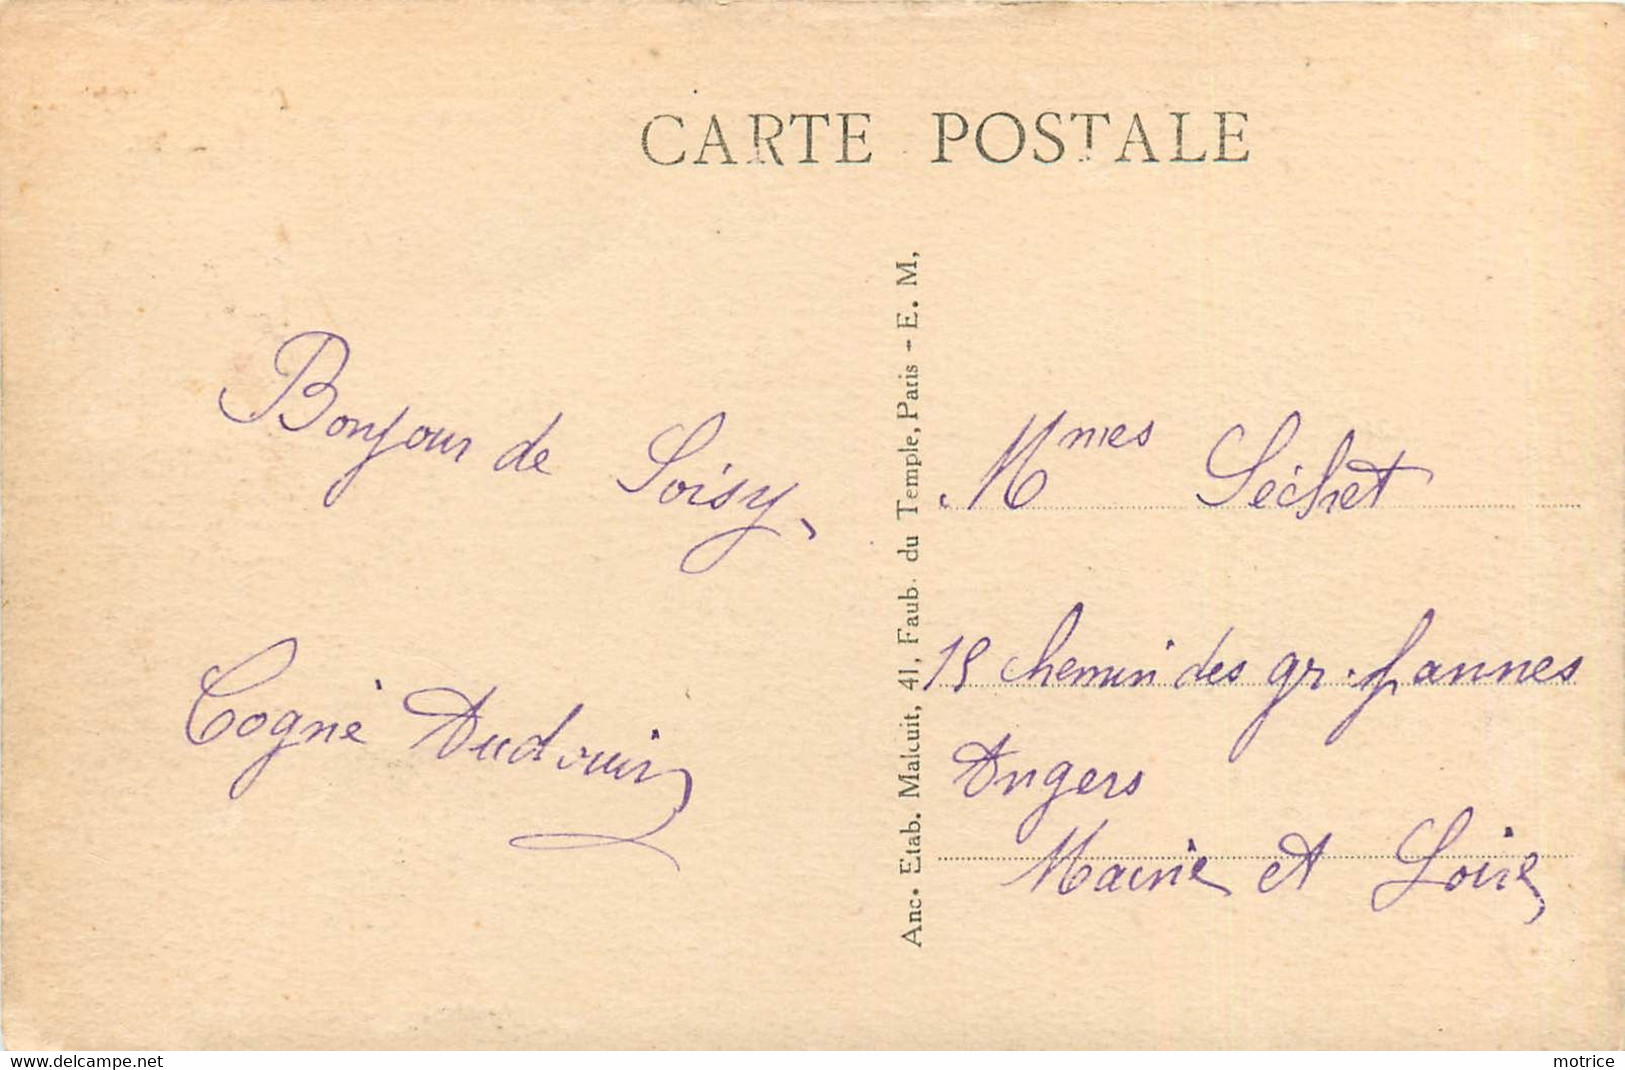 CARTE POSTALE
Bonjour de Soisy,
Cogné Audouin
Anc. Etab. Malcuit, 41, Faub. du Temple, Paris - E. M,
Mmes Séchet
15 chemin des gr. pannes
Angers
Maine et Loire
www.delcampe.net
motrice